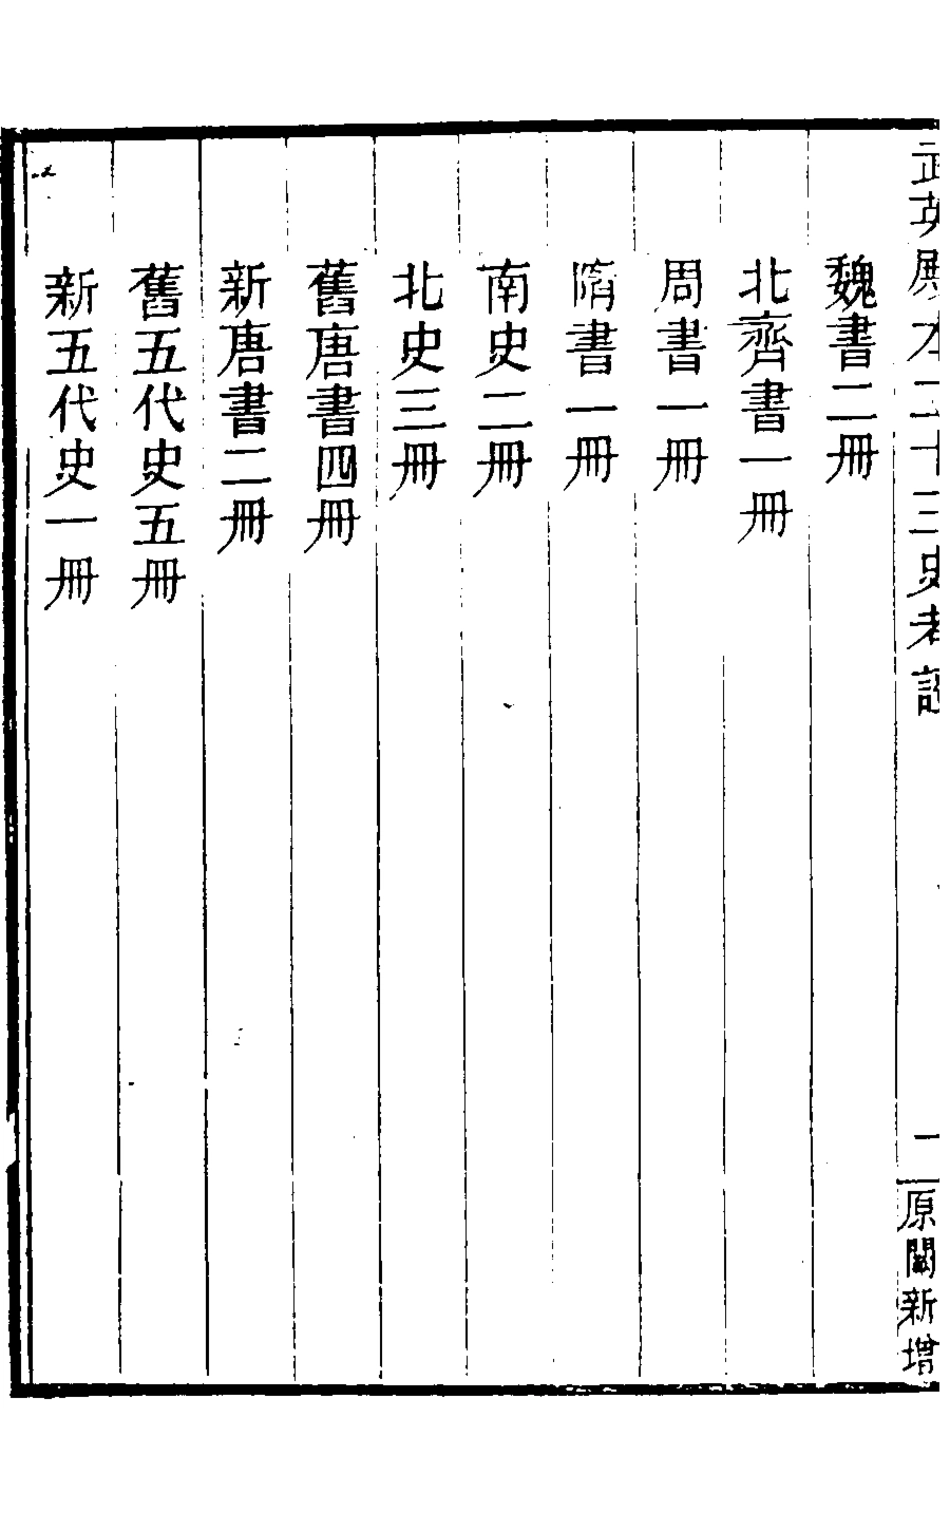 武英殿本二十三史考證
一
原闕新增
魏書二冊
北齊書一冊
周書一冊
隋書一冊
南史二冊
北史三冊
舊唐書四冊
新唐書二冊
舊五代史五冊
新五代史一冊